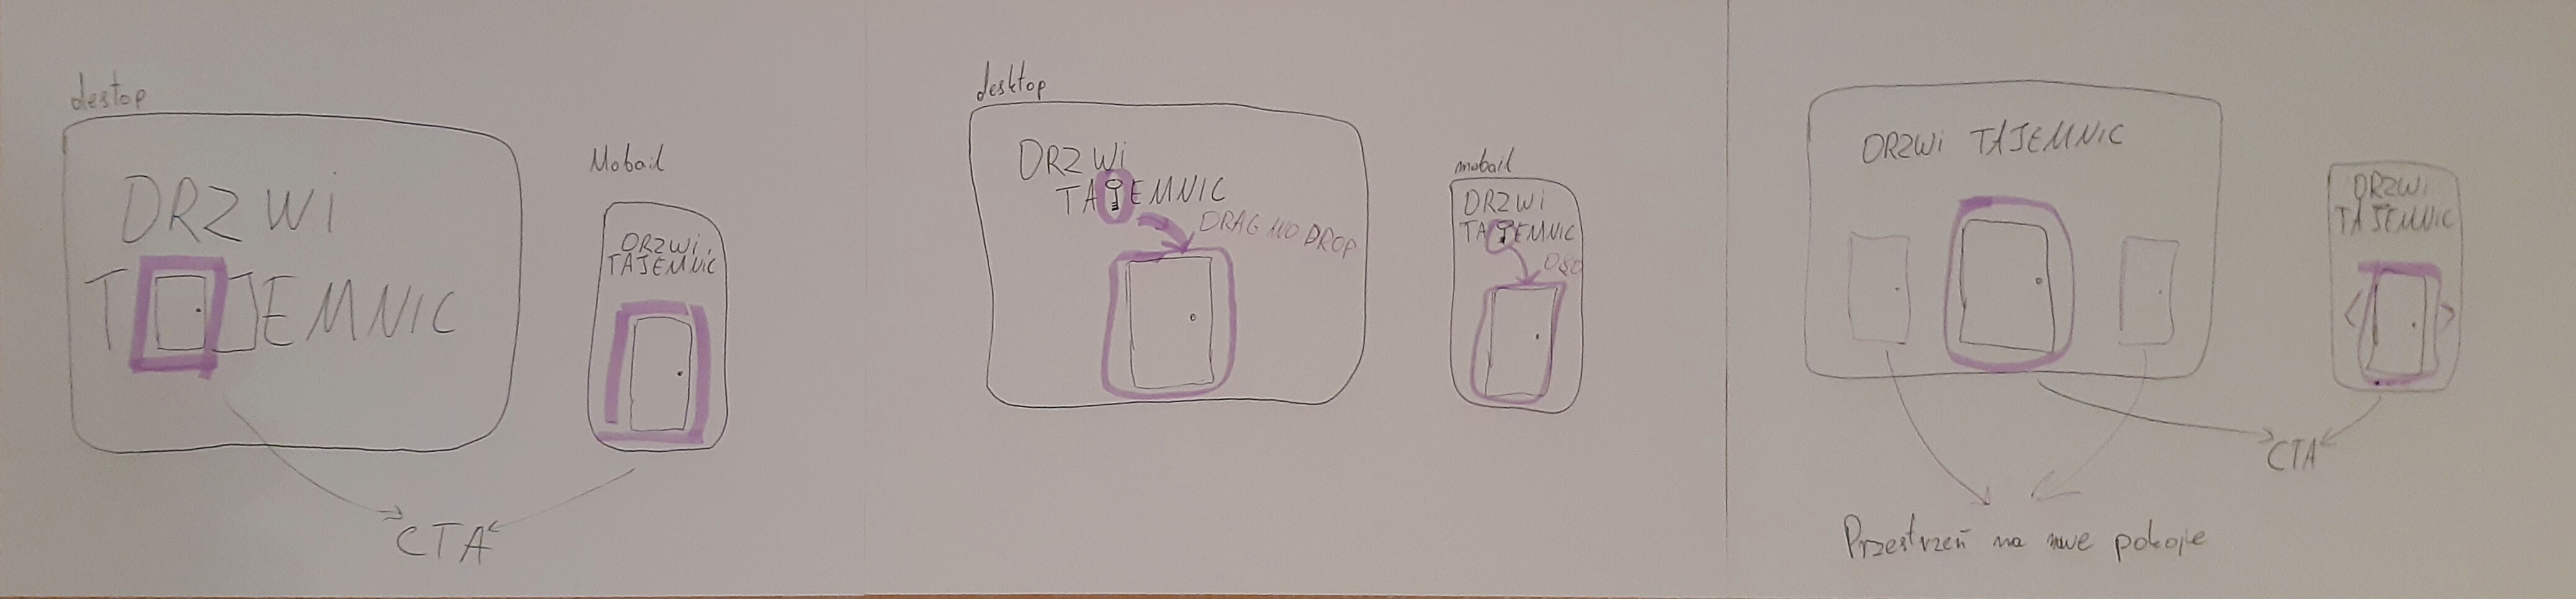 destop
DRZWi
T JEMNIC
Mobail
DRZWi
TAJEMNiC
CTA
desktop
DRZWi
TA EMNIC
DRAG ND DROP
mobail
DRZWi
TA EMNIC
D&D
DRZWi TAJEMNIC
DRZWi
TAJEMNIC
< >
CTA
Przestrzeń na nowe pokoje